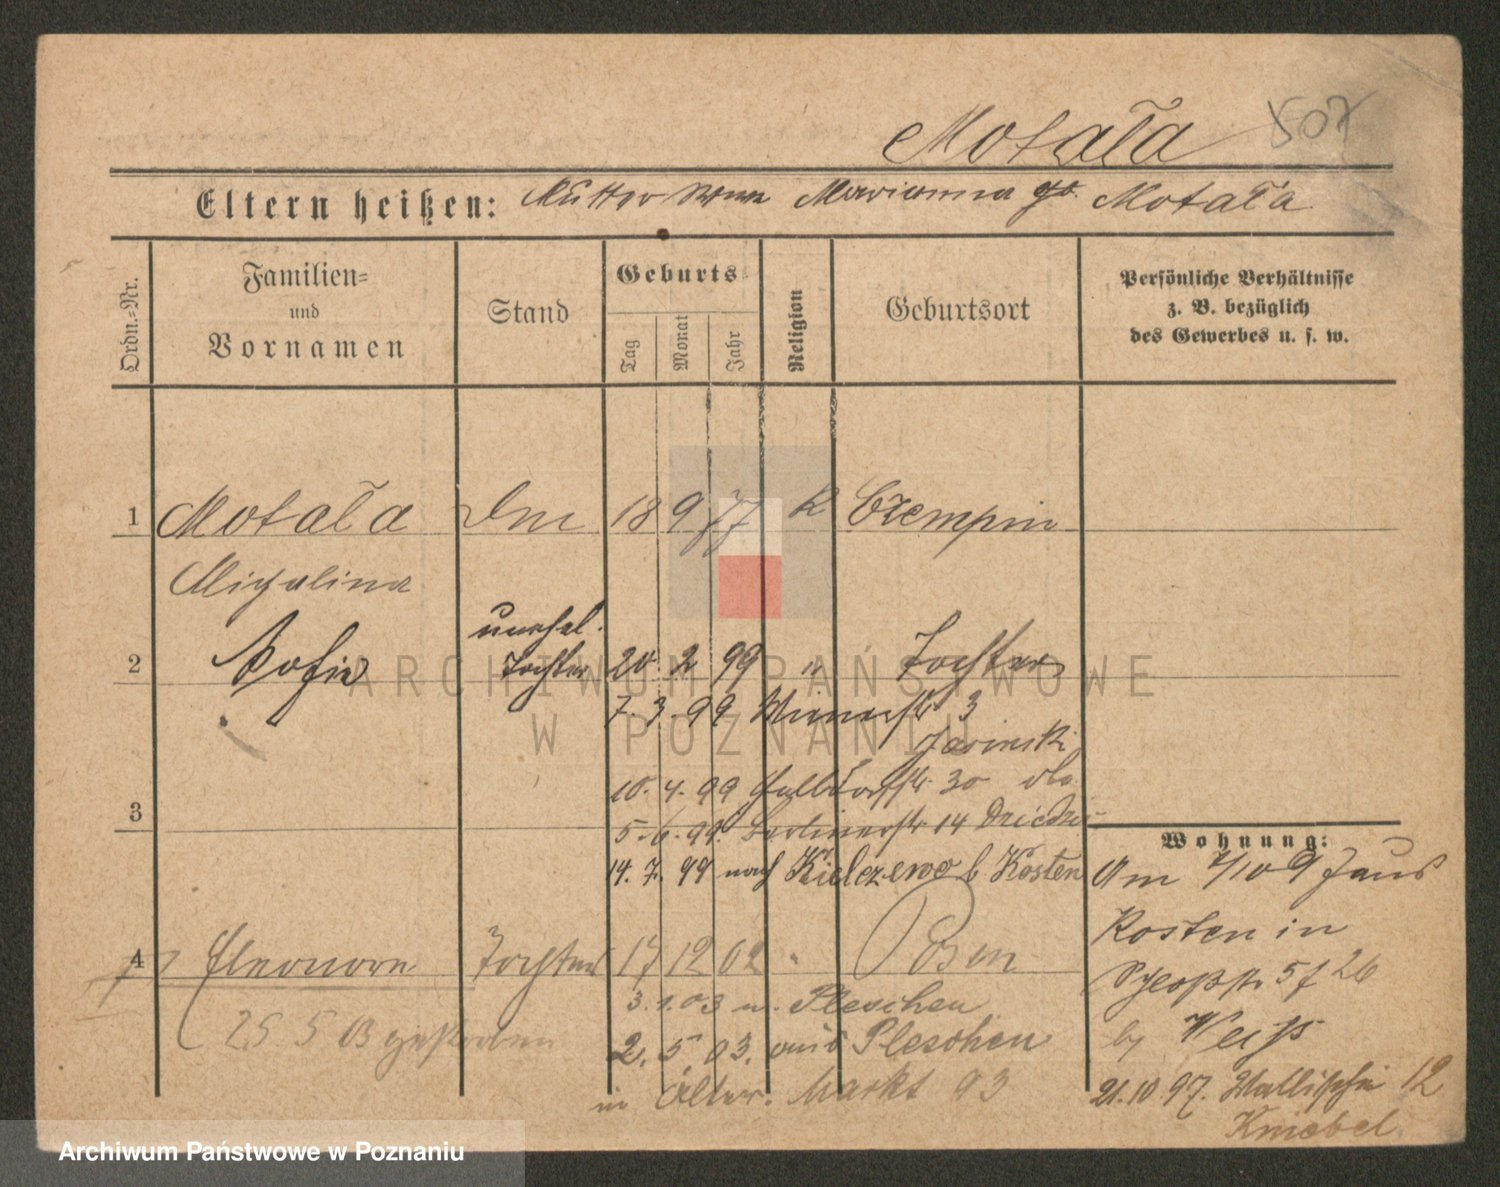 Motała 507
Eltern heißen: Mutter Marianna Motała
Ordn.-Nr.
Familien-
und
Vornamen
Stand
Geburts
Tag
Monat
Jahr
Religion
Geburtsort
Persönliche Verhältnisse
z. B. bezüglich
des Gewerbes u. s. w.
1 Motała 18 9 77 K Czempin
Michalina
unehel.
2 Sofie Tochter 20. 2 99 " Tochter
7. 3. 99 Wienerstr 3
Jasinski
3
10. 4. 99 Halbdorfstr. 30
5. 6. 99. Berlinerstr 14
14. 7. 99 nach Kielczewo b Kosten
Wohnung:
Am 7/10 97 aus
Kosten in
Schloßstr 5 f 26
by Weiss
21.10 97. Wallischei 12
Kniebel
4 Eleonore Tochter 17 12 02 " Posen
3. 1. 03 n. Pleschen
25 5 03 gestorben
2. 5 03. aus Pleschen
in Alter. Markt 93
ARCHIWUM PAŃSTWOWE
W POZNANIU
Archiwum Państwowe w Poznaniu